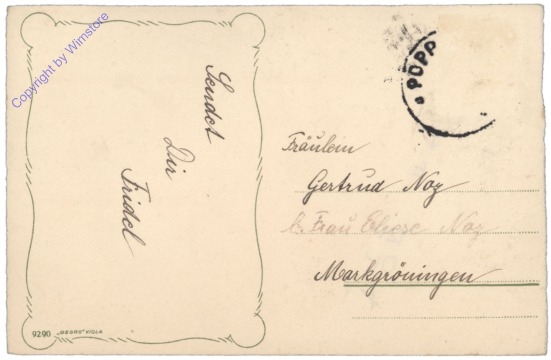 Copyright by Wimstore
Sendet
Dir
Fridel
a POPP
Fräulein
Gertrud Noz
b. Frau Eliese Noz
Markgröningen
9290 „GEORG“ VIOLA